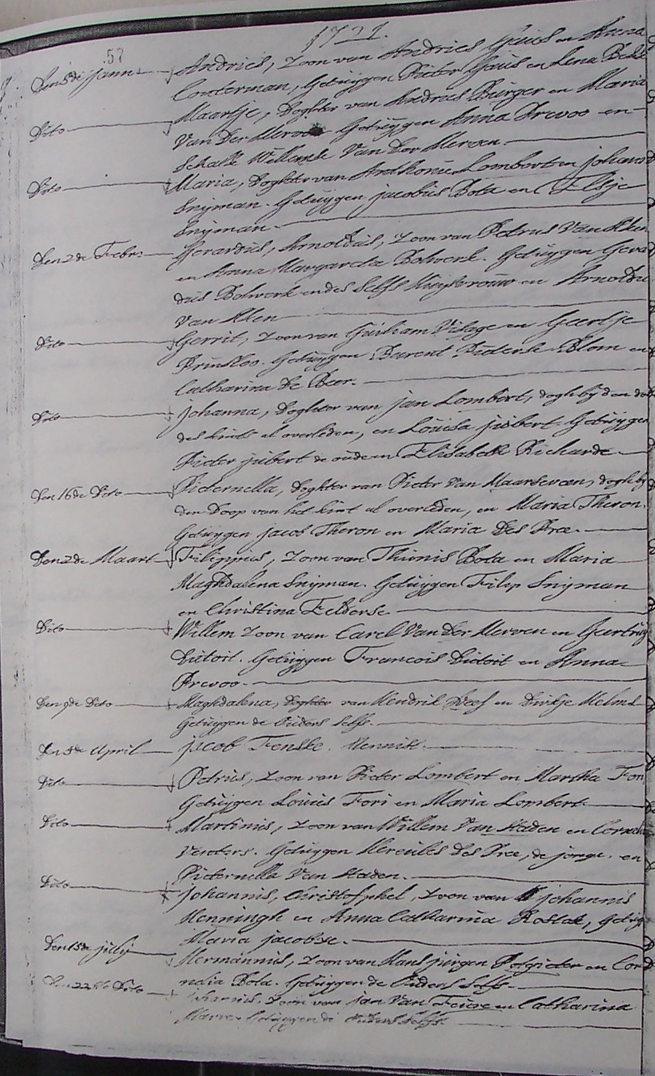 57
1721.
Den 5de Jann. Andries, Zoon van Andries Gous en Anna
Conterman, Getuygen Pieter Gous en Lena
Dito Maartje, Doghter van Andries Burger en Maria
Van Der Merwe Getuygen Anna Prevoo en
Schalk Willemse Van Der Merwe
Dito Maria, Doghter van Anthonie Lombert en Johanna
Snijman. Getuygen Jacobus Bota en Elsje
Snijman
Den 2de Febr. Gerardus, Arnoldus, Zoon van Petrus Van
en Anna Margareta Bolwerk. Getuygen Gerar
dus Bolwerk en des selfs Huysvrouw en Arnoldus
Van
Dito Gerrit, Zoon van Guilliam Visage en Geertje
Prinsloo. Getuygen Barent Pieterse Blom en
Catharina De Beer.
Dito Johanna, Doghter van Jan Lombert, dogh bij den doop
des kints al overleden, en Louisa Jubert. Getuygen
Pieter Jubert de oude en Elisabeth Richarde
Den 16de Dito Pieternella, Doghter van Pieter Van Maarseveen, dogh bij
den Doop van het kint al overleden, en Maria Theron.
Getuygen Jacob Theron en Maria Des Prez.
Den 2de Maart Filippus, Zoon van Theunis Bota en Maria
Maghdalena Snijman. Getuygen Filip Snijman
en Christina
Dito Willem Zoon van Carel Van Der Merwe en Geertruy
Dutoit. Getuygen Francois Dutoit en Anna
Prevoo.
Den 9de Dito Maghdalena, Doghter van Hendrik en Dirkje Helms
Getuygen de Ouders Selfs.
Den 5de April Jacob Fenske. Mennist.
Dito Petrus, Zoon van Pieter Lombert en Martha
Getuygen Louis en Maria Lombert
Dito Martinus, Zoon van Willem Van Staden en Cornelia
Getuygen Hercules Des Prez, de jonge. en
Pieternella Van Staden.
Dito Johannis, Christoffel, Zoon van Johannis
Henningh en Anna Catharina
Maria Jacobse.
Den 13de July Hermannus, Zoon van Hans Jurgen Potgieter en Cor
nelia Bota. Getuygen de Ouders Selfs
Dito Zoon van Jan Van en Catharina
Getuygen de Ouders Selfs.